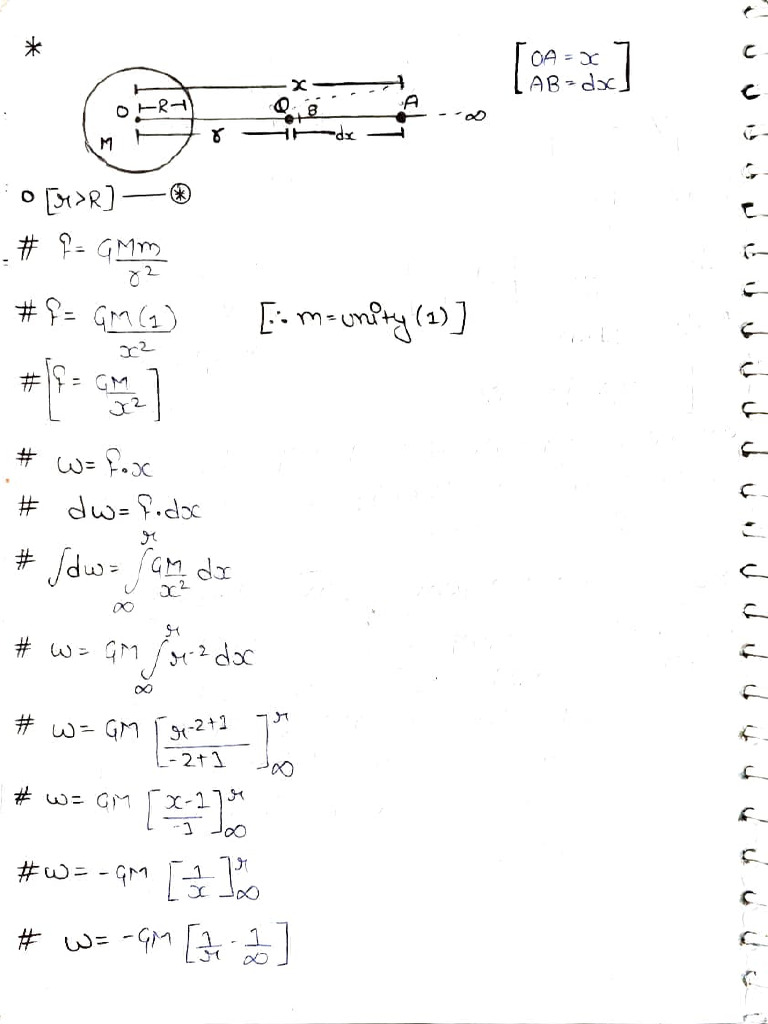 *
[OA = x
AB = dx]
x
O R Q B A --∞
M r dx
o [r>R] — ⊛
# f = GMm/r²
# f = GM(1)/x² [∴ m = unity (1)]
# [f = GM/x²]
# w = f.x
# dw = f.dx
# ∫dw = ∫_∞^r GM/x² dx
# w = GM ∫_∞^r r-2 dx
# w = GM [r-2+1/-2+1]_∞^r
# w = GM [x-1/-1]_∞^r
# w = -GM [1/x]_∞^r
# w = -GM [1/r - 1/∞]